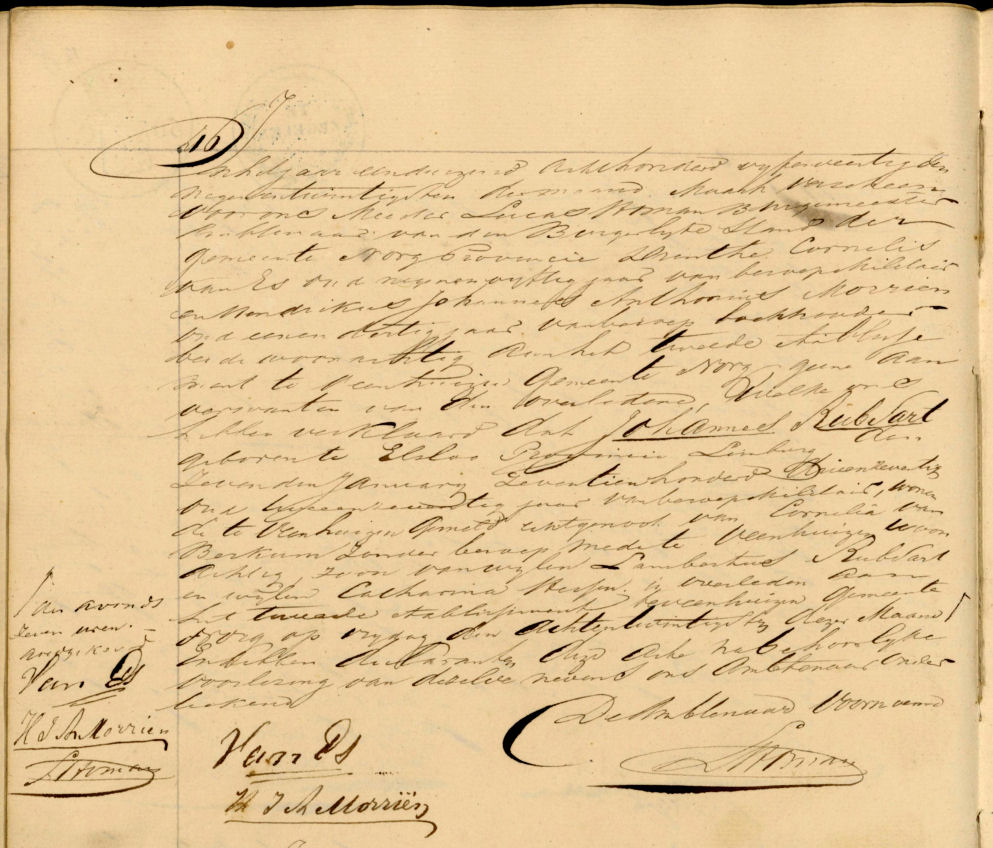 46)
In het jaar eenduizend achthonderd vyfenveertig den
negenentwintigsten der maand Maart verscheen
voor ons Meester Lucas Homan Burgemeester
Ambtenaar van den Burgerlyke Stand der
gemeente Norg Provincie Drenthe, Cornelis
van Es oud negenenvyftig jaar van beroep Militair
en Hendrikus Johannes Anthonius Morrien
oud eenen dertig jaar van beroep boekhouder
beide woonachtig aan het tweede Etablisse
ment te Veenhuizen Gemeente Norg geene aan
verwanten van den overledene, Welke ons
hebben verklaard dat Johannes Rubsart
geboren te Elsloo Provincie Limburg den
Zevenden January Zeventienhonderd Drieenzeventig
oud tweeenzeventig jaar van beroep Militair, wonen
de te Veenhuizen Gemeld echtgenoot van Cornelia van
Berkum Zonder beroep mede te Veenhuizen woon
achtig, zoon van wylen Lambertus Rubsart
en wylen Catharina is overleden aan
het tweede Etablissement te Veenhuizen Gemeente
Norg op vrydag den Achtentwintigsten dezer Maand ſ
En hebben de Declaranten deze Acte na behoorlyke
voorlezing van dezelve nevens ons Ambtenaar Onder
teekend
De Ambtenaar Voornoemd
Van Es
LHoman
H J A Morriën
ſ des avonds
zeven uren.
Van Es
H J A Morrien
LHoman